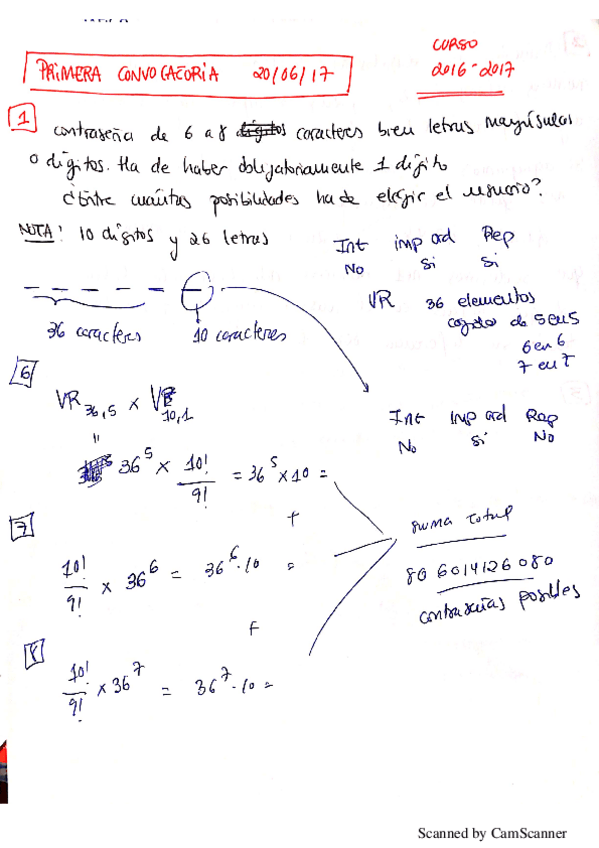 CURSO
2016-2017
PRIMERA CONVOCATORIA 20/06/17
1 contraseña de 6 a 8 caracteres bien letras mayúsculas
o dígitos. Ha de haber obligatoriamente 1 dígito
¿Entre cuántas posibilidades ha de elegir el usuario?
NOTA: 10 dígitos y 26 letras
Int imp ord Rep
No Si Si
VR 36 elementos
cogidos de 5 en 5
6 en 6
7 en 7
36 caracteres 10 caracteres
6
VR36,5 × VR10,1
Int Imp ord Rep
No Si No
"
36^5 × 10!/9! = 36^5 × 10 =
+
7
suma total
10!/9! × 36^6 = 36^6·10 =
806014126080
contraseñas posibles
+
8
10!/9! × 36^7 = 36^7·10 =
Scanned by CamScanner